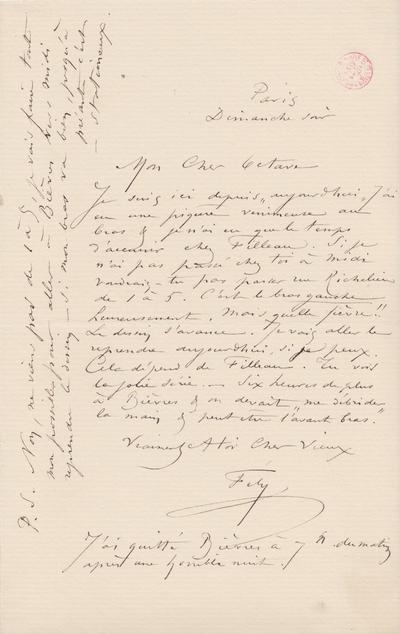 Paris
Dimanche soir
Mon Cher Octave
Je suis ici depuis "aujourdhui, J'ai
eu une piqure venimeuse au
bras & je n'ai eu que le temps
d'accourir chez Filleau. Si je
n'ai pas passé chez toi à midi
voudrais-tu pas passer rue Richelieu
de 1 à 5. C'est le bras gauche
heureusement, mais quelle fièvre!!
Le dessin s'avance. Je vais aller le
reprendre aujourdhui, si je peux.
Cela dépend de Filleau. Tu vois
la jolie série. — Six heures de plus
à Bièvres & on devait "me débrider
la main & peut etre l'avant bras."
Vraiment A toi Cher Vieux
Fély
J'ai quitté Bièvres à 7 h. du matin
après une horrible nuit.
P. S. Non, ne viens pas de 1 à 5, je vais faire tout
mon possible pour aller à Bièvres vers midi
reprendre le dessin — si mon bras va bien, jusqu'à
présent c'est
— stationnaire.